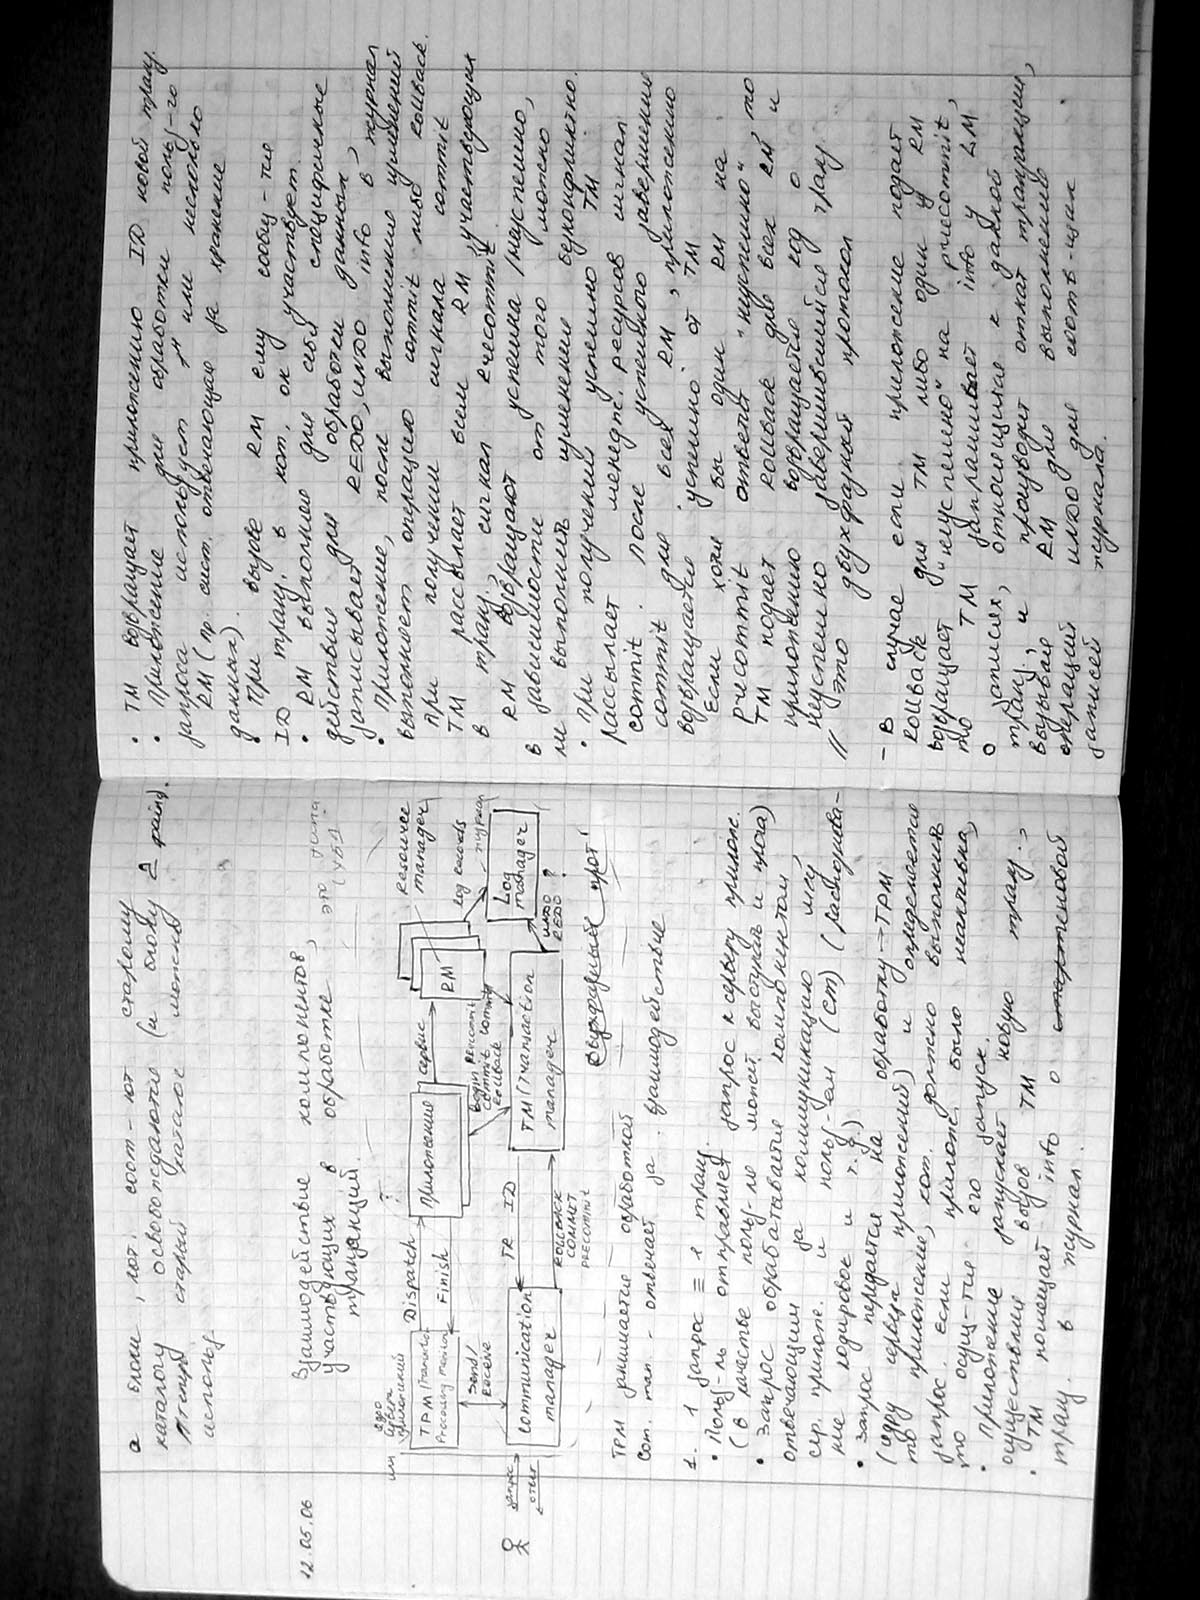 а блоки, кот. соот-ют старому
каталогу освобождаются (и блоки Δ файл).
Птепр старый каталог можно
использ
12.05.06
Взаимодействие компонентов,
участвующих в обработке
транзакций.
это типа
(УБД)
ядро
сервера
приложений
или
TPM (Transaction
Processing Monitor)
Dispatch
Finish
?
приложения
сервис
RM
Resource
manager
log records
журнал
Log
manager
Send/
Receive
Begin Precommit
commit
rollback
commit
UNDO
REDO ?
запрос
ответ
communication
manager
TR ID
ROLLBACK
COMMIT
PRECOMMIT
TM (Transaction
manager
Двухфазный прот
TPM занимается обработкой
Com. man. - отвечает за взаимодействие
1. 1 запрос ≡ 1 транз.
• Польз-ль отправляет запрос к серверу прилож.
(в качестве польз-ля может выступать и прога)
• Запрос обрабатывается компонентом,
отвечающим за коммуникацию м/у
сер. прилож. и польз-лем (cm) (раскодирова-
ние кодировок и т.д)
• Запрос передается на обработку → TPM
(ядру сервера приложений) и определяется
то приложение, кот. должно выполнить
запрос. Если прилож. было неактивно,
то осущ-тся его запуск.
• Приложение запускает новую транз.,
осуществляя вызов TM
• TM помещает info о стартеновой
транз. в журнал.
• TM возвращает приложению ID новой транз.
• Приложение для обработки польз-го
запроса использует 1 или несколько
RM (пр. сист. отвечающая за хранение
данных).
• При вызове RM ему сообщ-тся
ID транз. в кот. он участвует.
• RM выполняет для себя специфичные
действия для обработки данных,
записывает REDO, UNDO info в журнал
• Приложение, после выполнения изменений
выполняет операцию commit либо rollback.
При получении сигнала commit
TM рассылает всем RM, участвующих
в транз., сигнал precommit.
RM возвращают успешна/неуспешно,
в зависимости от того можно
ли выполнить изменения безконфликтно.
• При получении успешно TM
рассылает менедж. ресурсов сигнал
commit. После успешного завершения
commit для всех RM, приложению
возвращается "успешно" от TM.
Если хотя бы один RM на
precommit ответит "неуспешно", то
TM подает Rollback для всех RM и
приложению возвращается код о
неуспешно завершившейся транз.
// это двухфазный протокол
- В случае если приложение подаёт
Rollback для TM либо один у RM
возвращает "неуспешно" на precommit,
то TM запрашивает info у LM
о записях, относящихся к данной
транз., и производит откат транзакции,
вызывая RM для выполнения
операций UNDO для соотв-щих
записей журнала.